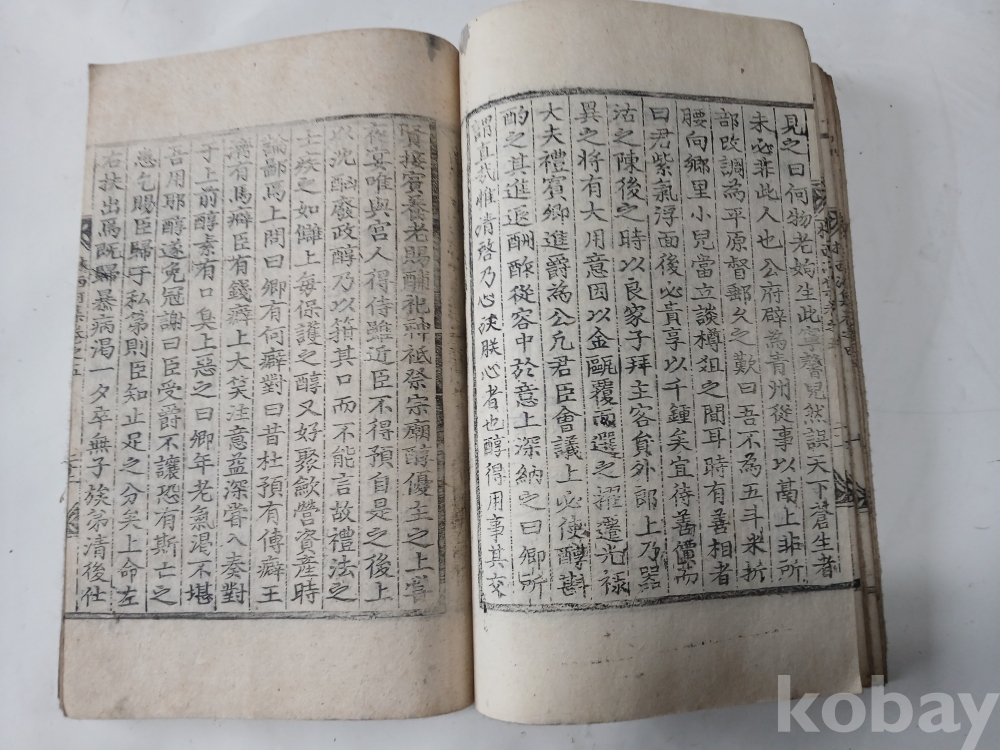 見之曰何物老媼生此寧馨兒然誤天下蒼生者
未必非此人也公府辟爲青州從事以鬲上非所
部改調爲平原督郵久之歎曰吾不爲五斗米折
腰向鄕里小兒當立談樽俎之間耳時有善相者
曰君紫氣浮面後必貴享以千鍾矣宜待善價而
沽之陳後之時以良家子拜主客負外郞上乃器
異之將有大用意因以金甌覆而選之擢遷光祿
大夫禮賓卿進爵爲公凡君臣會議上必使醇斟
酌之其進退酬酢從容中於意上深納之曰卿所
謂直哉惟淸啓乃心沃朕心者也醇得用事其交
賢接賓養老賜酺祀神祇祭宗廟醇優主之上嘗
夜宴唯與宮人得侍雖近臣不得預自是之後上
以沈酗廢政醇乃以箝其口而不能言故禮法之
士疾之如讎上每保護之醇又好聚歛營資産時
論鄙焉上問曰卿有何癖對曰昔杜預有傳癖王
濟有馬癖臣有錢癖上大笑注意益深嘗入奏對
于上前醇素有口臭上惡之曰卿年老氣渴不堪
吾用耶醇遂免冠謝曰臣受爵不讓恐有斯亡之
患乞賜臣歸于私第則臣知止足之分矣上命左
右扶出焉旣歸暴病渴一夕卒無子族弟淸後仕
kobay